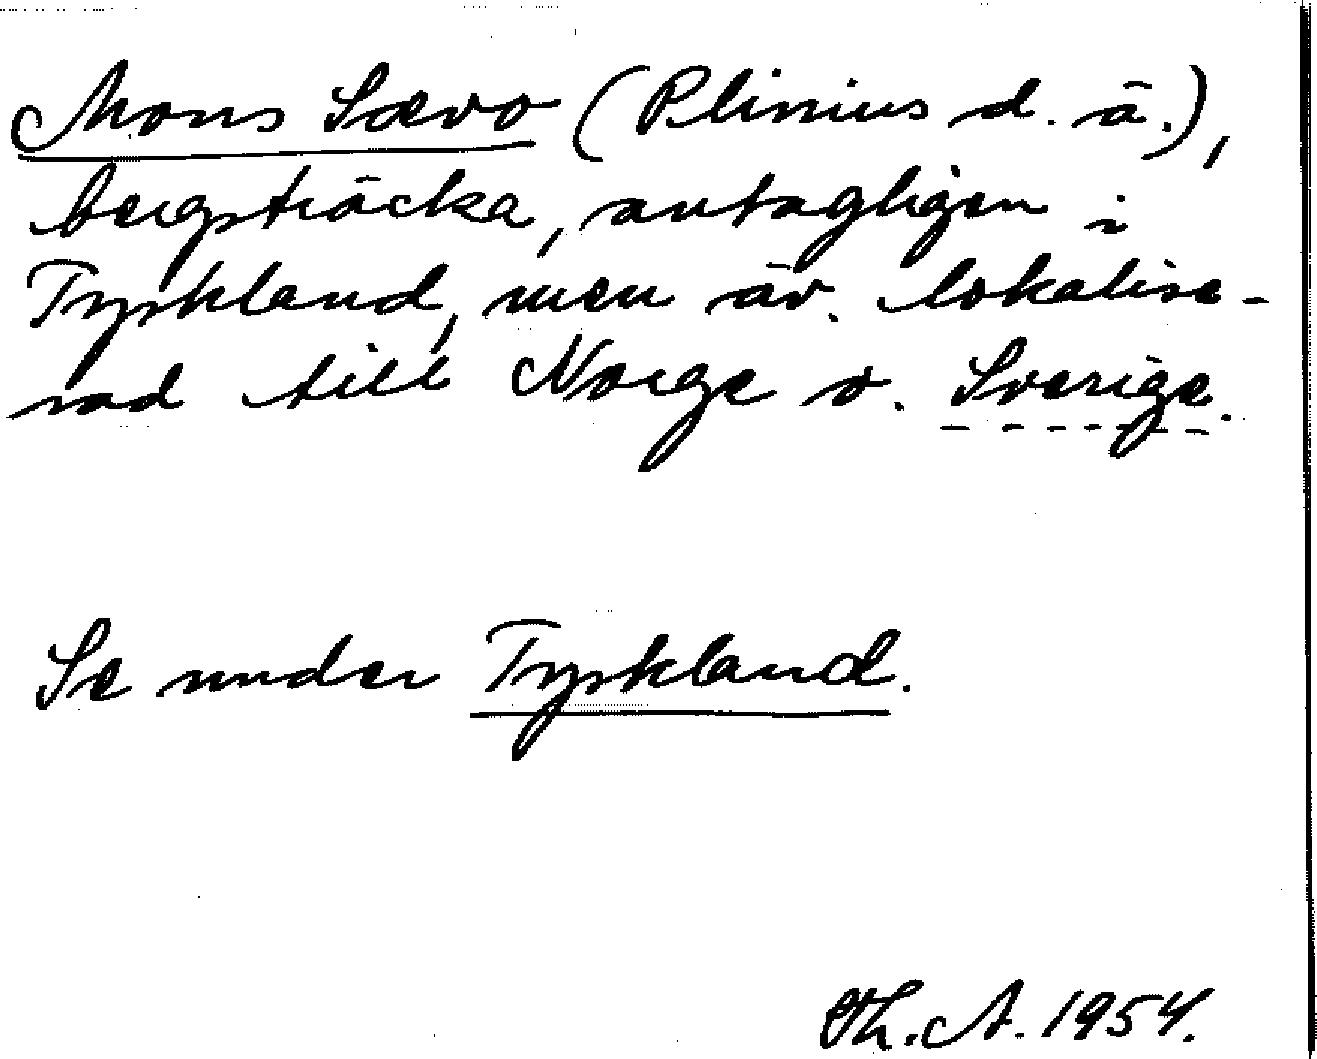 Mons Sævo (Plinius d. ä.),
bergsträcka, antagligen i
Tyskland, men äv. lokalise-
rad till Norge o. Sverige.
Se under Tyskland.
Th. A. 1954.